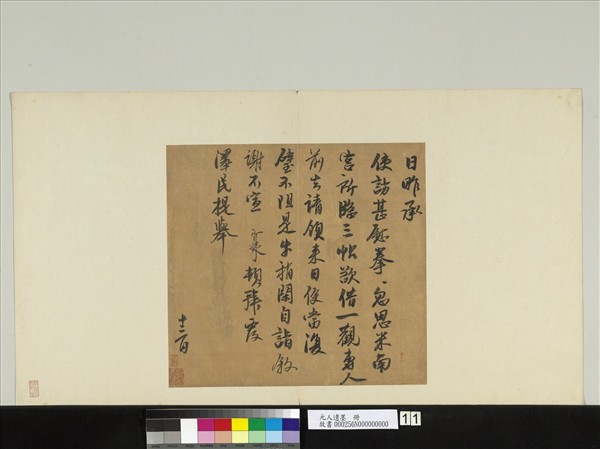 日昨承
使訪甚慰拳、忽思米南
宮所臨三帖欲借一觀專人
前去請領來日便當復
璧不阻是幸稍閑自詣敘
謝不宣 頓首拜覆
澤民提舉
十二日
元人遺墨 冊
故書 000256N000000000 11